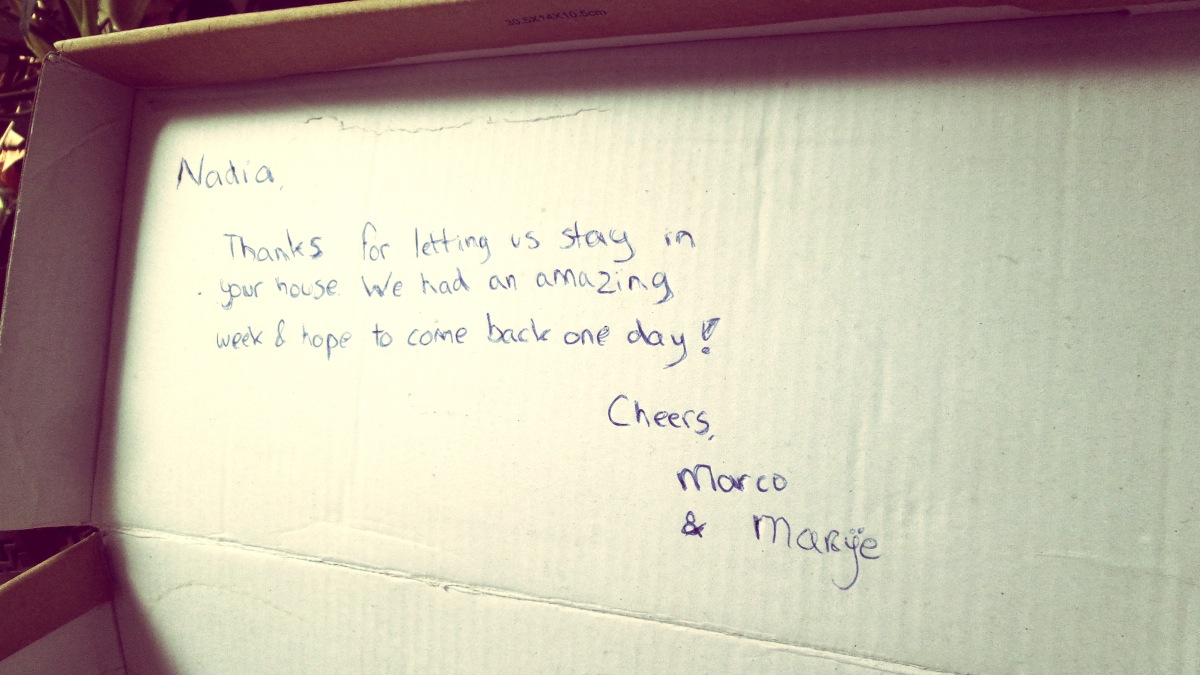 30.5X14X10.5cm
Nadia,
Thanks for letting us stay in
your house. We had an amazing
week & hope to come back one day!
Cheers,
Marco
& Marije